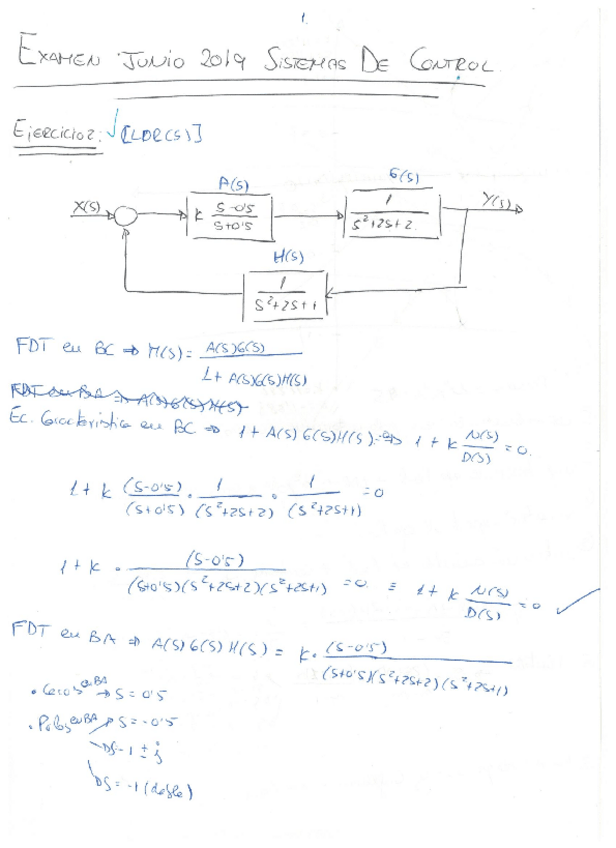 1.
EXAMEN JUNIO 2019 SISTEMAS DE CONTROL.
EJERCICIO 2: √ [LDR(S)]
A(s) G(s)
X(s) k (s-0'5)/(s+0'5) 1/(s²+2s+2) Y(s)
H(s)
1/(s²+2s+1)
FDT en BC ⇒ M(s) = A(s)G(s)/(1+A(s)G(s)H(s))
FDT en BA ⇒ A(s)G(s)H(s)
Ec. Característica en BC ⇒ 1+A(s)G(s)H(s)=0 ⇒ 1+k N(s)/D(s) = 0.
1+k (s-0'5)/(s+0'5) · 1/(s²+2s+2) · 1/(s²+2s+1) = 0
1+k · (s-0'5)/((s+0'5)(s²+2s+2)(s²+2s+1)) = 0 ≡ 1+k N(s)/D(s) = 0 ✓
FDT en BA ⇒ A(s)G(s)H(s) = k · (s-0'5)/((s+0'5)(s²+2s+2)(s²+2s+1))
· Ceros en BA → s = 0'5
· Polos en BA → s = -0'5
→ s = -1 ± j
→ s = -1 (doble)